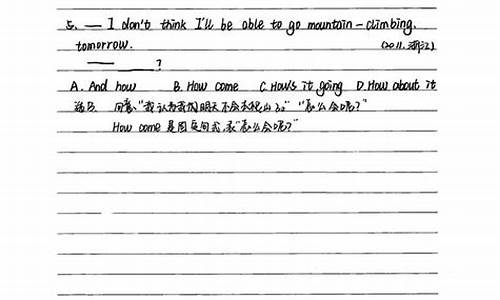 5. — I don't think I'll be able to go mountain-climbing
tomorrow. (2011.浙江)
— ______?
A. And how B. How come C. How's it going D. How about it
选B. 句意:"我认为我明天不会去爬山了。" "怎么会呢?"
How come 是固定句式,表"怎么会呢?"